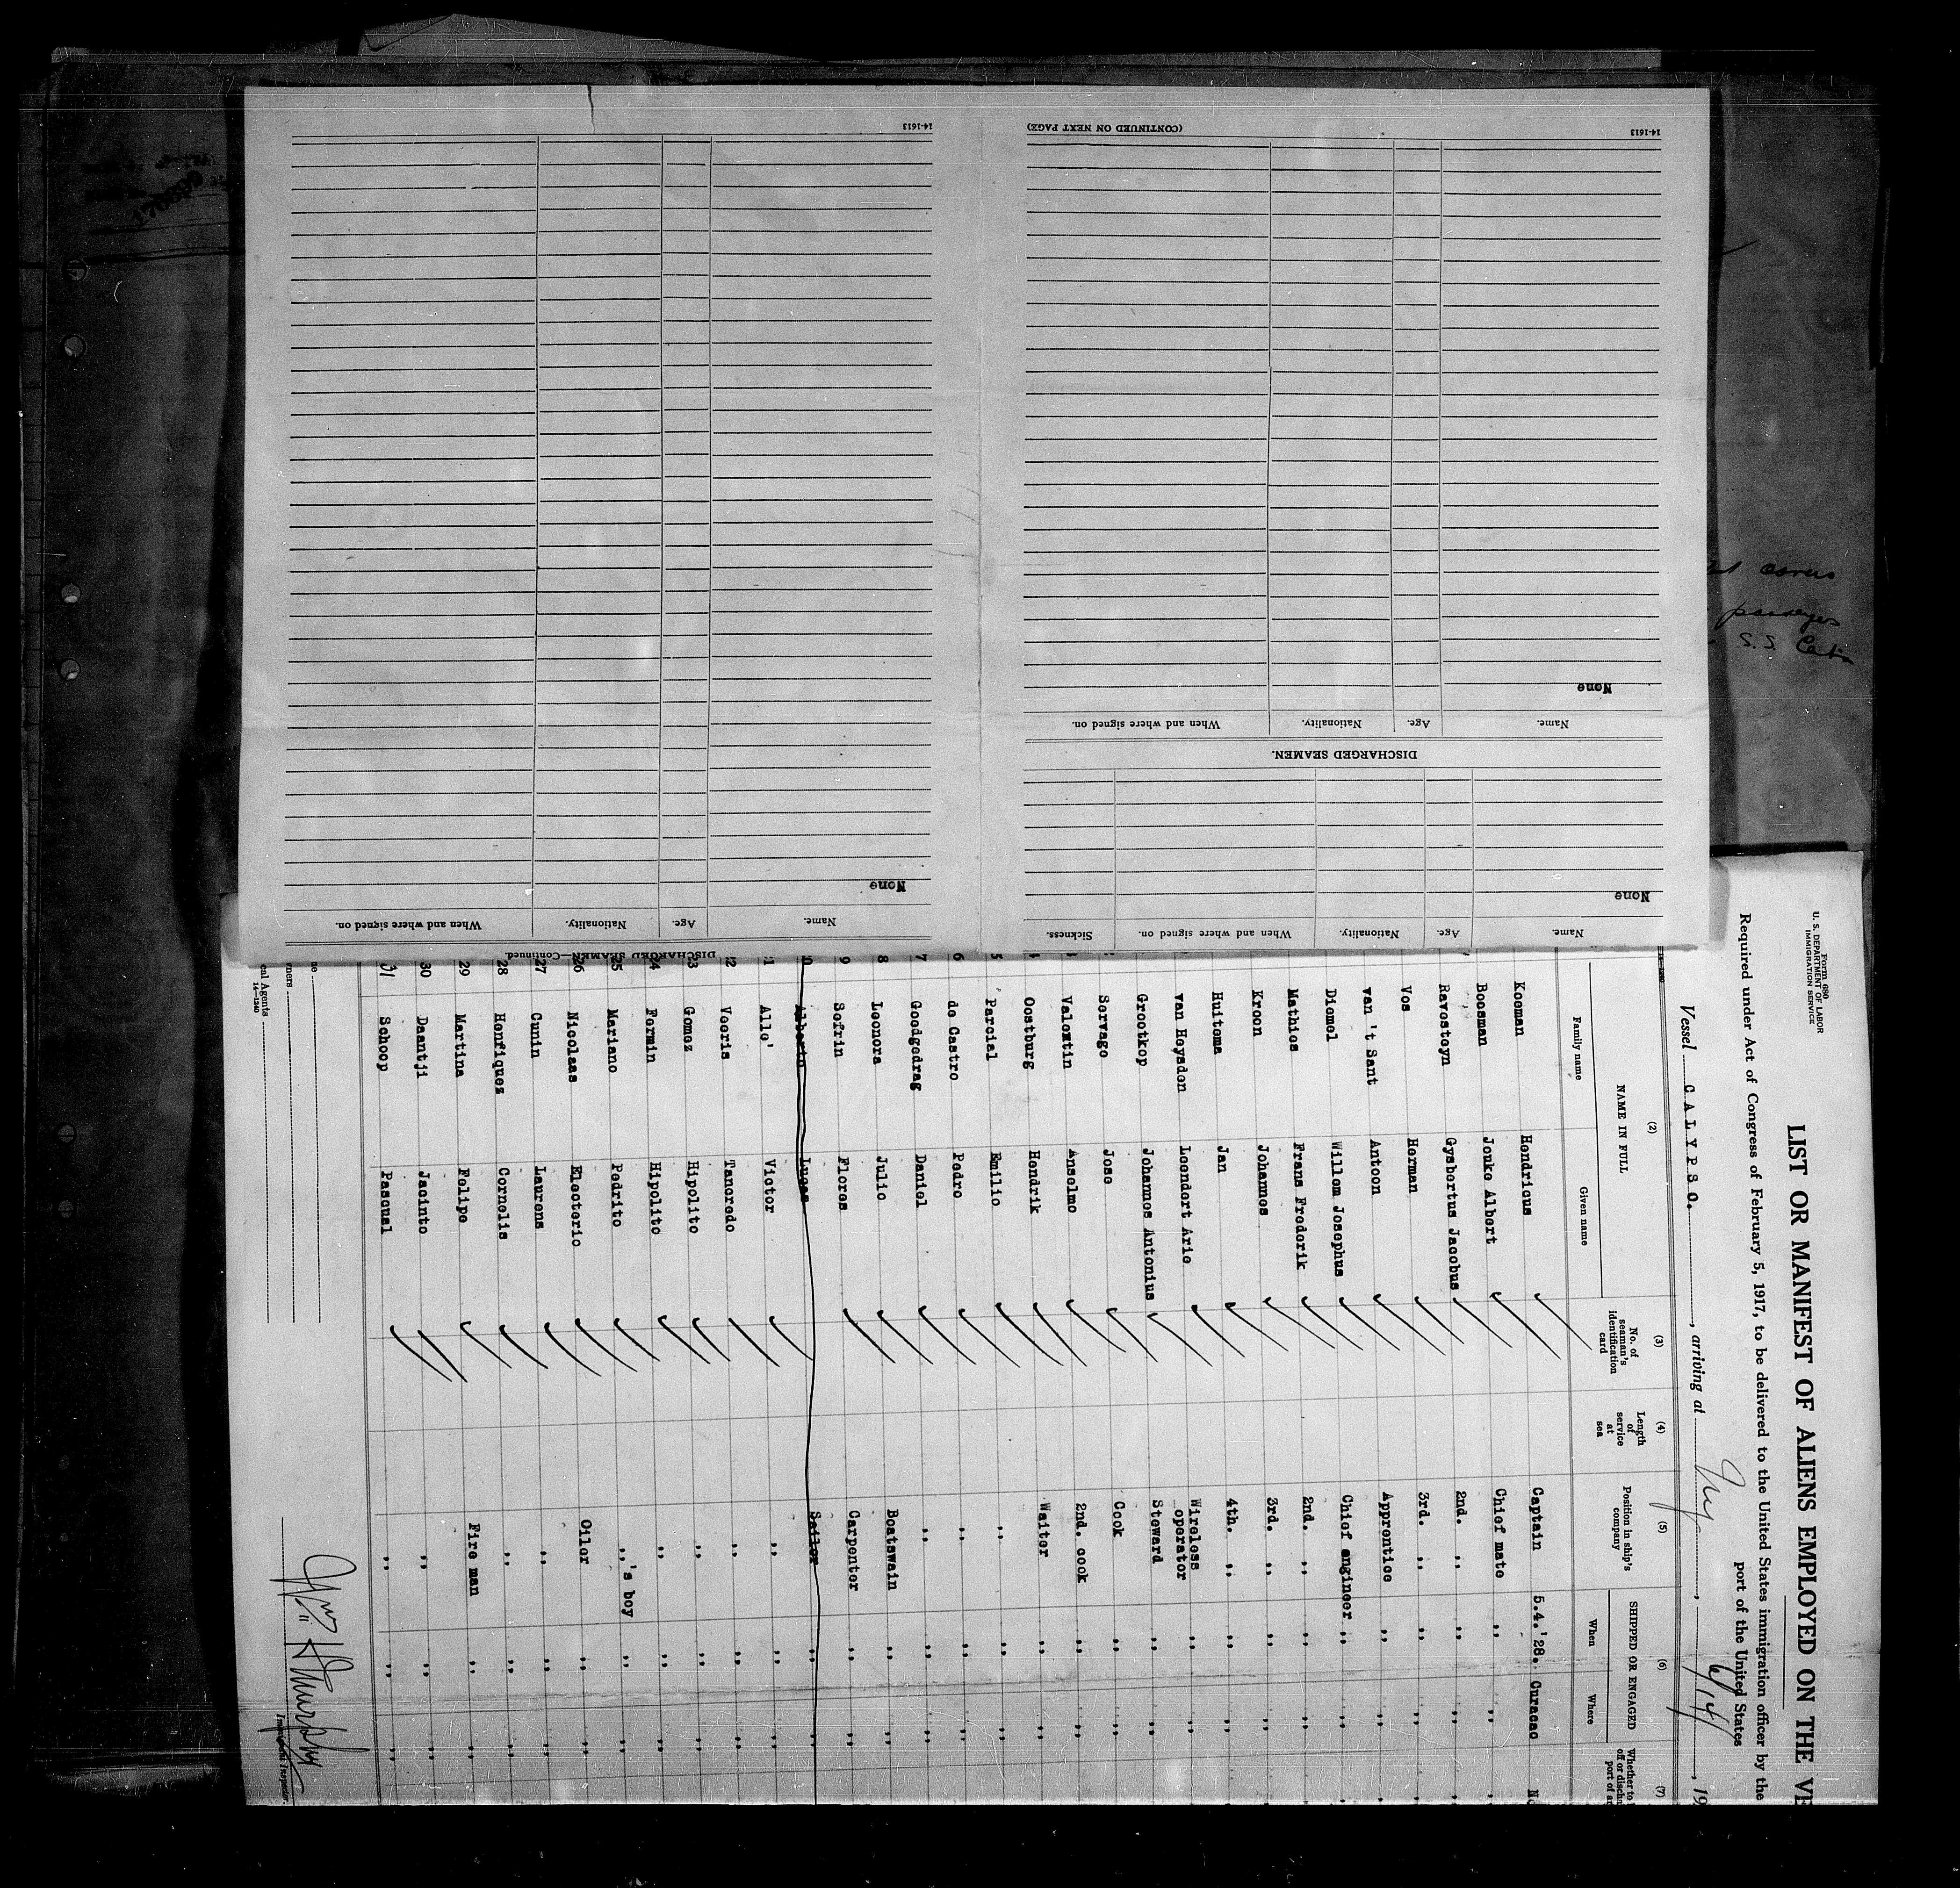 14-1613
(CONTINUED ON NEXT PAGE)
14-1613
None
Name.
Age.
Nationality.
When and where signed on.
DISCHARGED SEAMEN.
None
Name.
Age.
Nationality.
When and where signed on.
Sickness.
None
Name.
Age.
Nationality.
When and where signed on.
DISCHARGED SEAMEN—Continued.
passenger
S. S.
Form 680
U. S. DEPARTMENT OF LABOR
IMMIGRATION SERVICE
LIST OR MANIFEST OF ALIENS EMPLOYED ON THE VE
Required under Act of Congress of February 5, 1917, to be delivered to the United States immigration officer by the
port of the United States
Vessel CALYPSO. , arriving at , 6/14/ , 19
(2) (3) (4) (5) (6) (7)
NAME IN FULL No. of seaman's identification card Length of service at sea Position in ship's company SHIPPED OR ENGAGED
Family name Given name When Where
Kooman Hendricus Captain 5.4.'28. Curacao
Boosman Jouke Albert Chief mate ,, ,,
Ravesteyn Gysbertus Jacobus 2nd. ,, ,, ,,
Vos Herman 3rd. ,, ,, ,,
van 't Sant Antoon Apprentice ,, ,,
Diemel Willem Josephus Chief engineer ,, ,,
Mathies Frans Frederik 2nd. ,, ,, ,,
Kroon Johannes 3rd. ,, ,, ,,
Huitema Jan 4th. ,, ,, ,,
van Heysdon Leendert Arie Wireless operator ,, ,,
Grootkop Johannes Antonius Steward ,, ,,
Servage Jose Cook ,, ,,
Valentin Anselmo 2nd. cook ,, ,,
Oostburg Hendrik Waiter ,, ,,
5 Parcial Emilio ,, ,, ,,
6 de Castro Pedro ,, ,, ,,
7 Goedgedrag Daniel ,, ,, ,,
8 Leonora Julio Boatswain ,, ,,
9 Sofrin Flores Carpenter ,, ,,
0 Alberto Lucas Sailor ,, ,,
1 Allo' Victor ,, ,, ,,
2 Voeris Tancredo ,, ,, ,,
23 Gomez Hipolito ,, ,, ,,
24 Fermin Hipolito ,, ,, ,,
25 Mariano Pedrito ,,'s boy ,, ,,
26 Nicolaas Electerio Oiler ,, ,,
27 Cunin Laurens ,, ,, ,,
28 Henriquez Cornelis ,, ,, ,,
29 Martina Felipe Fire man ,, ,,
30 Daantji Jacinto ,, ,, ,,
31 Schoop Pascual ,, ,, ,,
wners
cal Agents
14-1240
Wm. H Murphy
Immigrant Inspector.